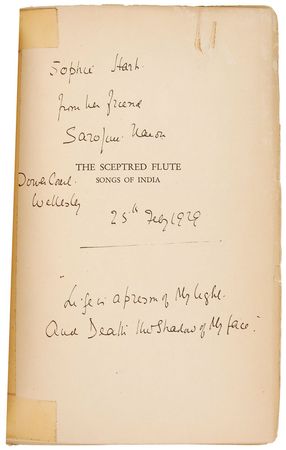 Sophie Hart.
from her friend
Sarojini Naidu
THE SCEPTRED FLUTE
SONGS OF INDIA
Wellesley
25th Feby 1929
"Life is a prism of My light.
And Death the Shadow of My face."